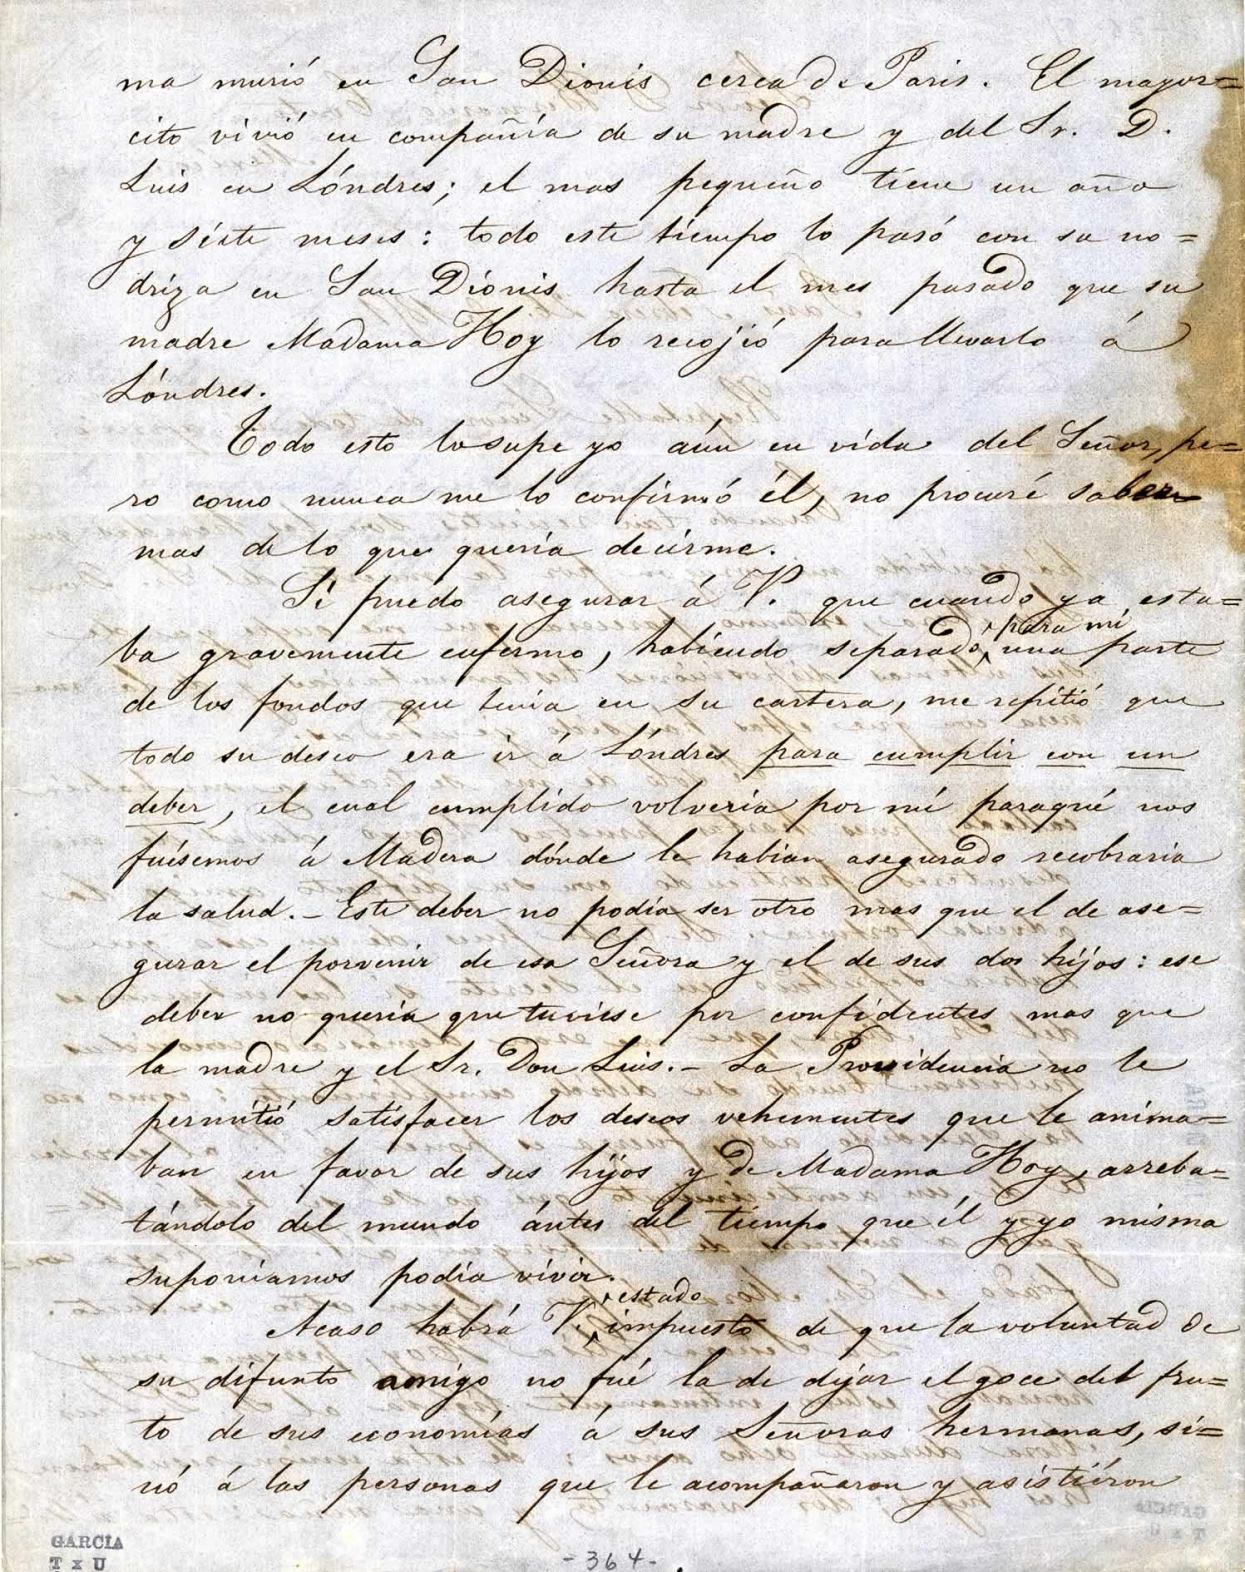 ma murió en San Dionis cerca de Paris. El mayor=
cito vivió en compañía de su madre y del Sr. D.
Luis en Lóndres; el mas pequeño tiene un año
y siete meses: todo este tiempo lo pasó con su no=
driza en San Dionis hasta el mes pasado que su
madre Madama Hoy lo recojió para llevarlo á
Lóndres.
Todo esto lo supe yo aún en vida del Señor, pe=
ro como nunca me lo confirmó él, no procuré saber
mas de lo que queria decirme.
Si puedo asegurar á V. que cuando ya esta=
ba gravemente enfermo, habiendo separado para mi una parte
de los fondos que tenia en su cartera, me repitió que
todo su deseo era ir á Lóndres para cumplir con un
deber, el cual cumplido volveria por mí paraqué nos
fuísemos á Madera dónde le habian asegurado recobraria
la salud. - Este deber no podia ser otro mas que el de ase=
gurar el porvenir de esa Señora y el de sus dos hijos: ese
deber no queria que tuviese por confidentes mas que
la madre y el Sr. Don Luis. - La Providencia no le
permitió satisfacer los deseos vehementes que le anima=
ban en favor de sus hijos y de Madama Hoy, arreba=
tándolo del mundo ántes del tiempo que él y yo misma
suponiamos podia vivir.
Acaso habrá V. estado impuesto de que la voluntad de
su difunto amigo no fué la de dejar el goce del fru=
to de sus economías á sus Señoras hermanas, si=
nó á las personas que le acompañaron y asistiéron
GARCIA
T x U
-364-